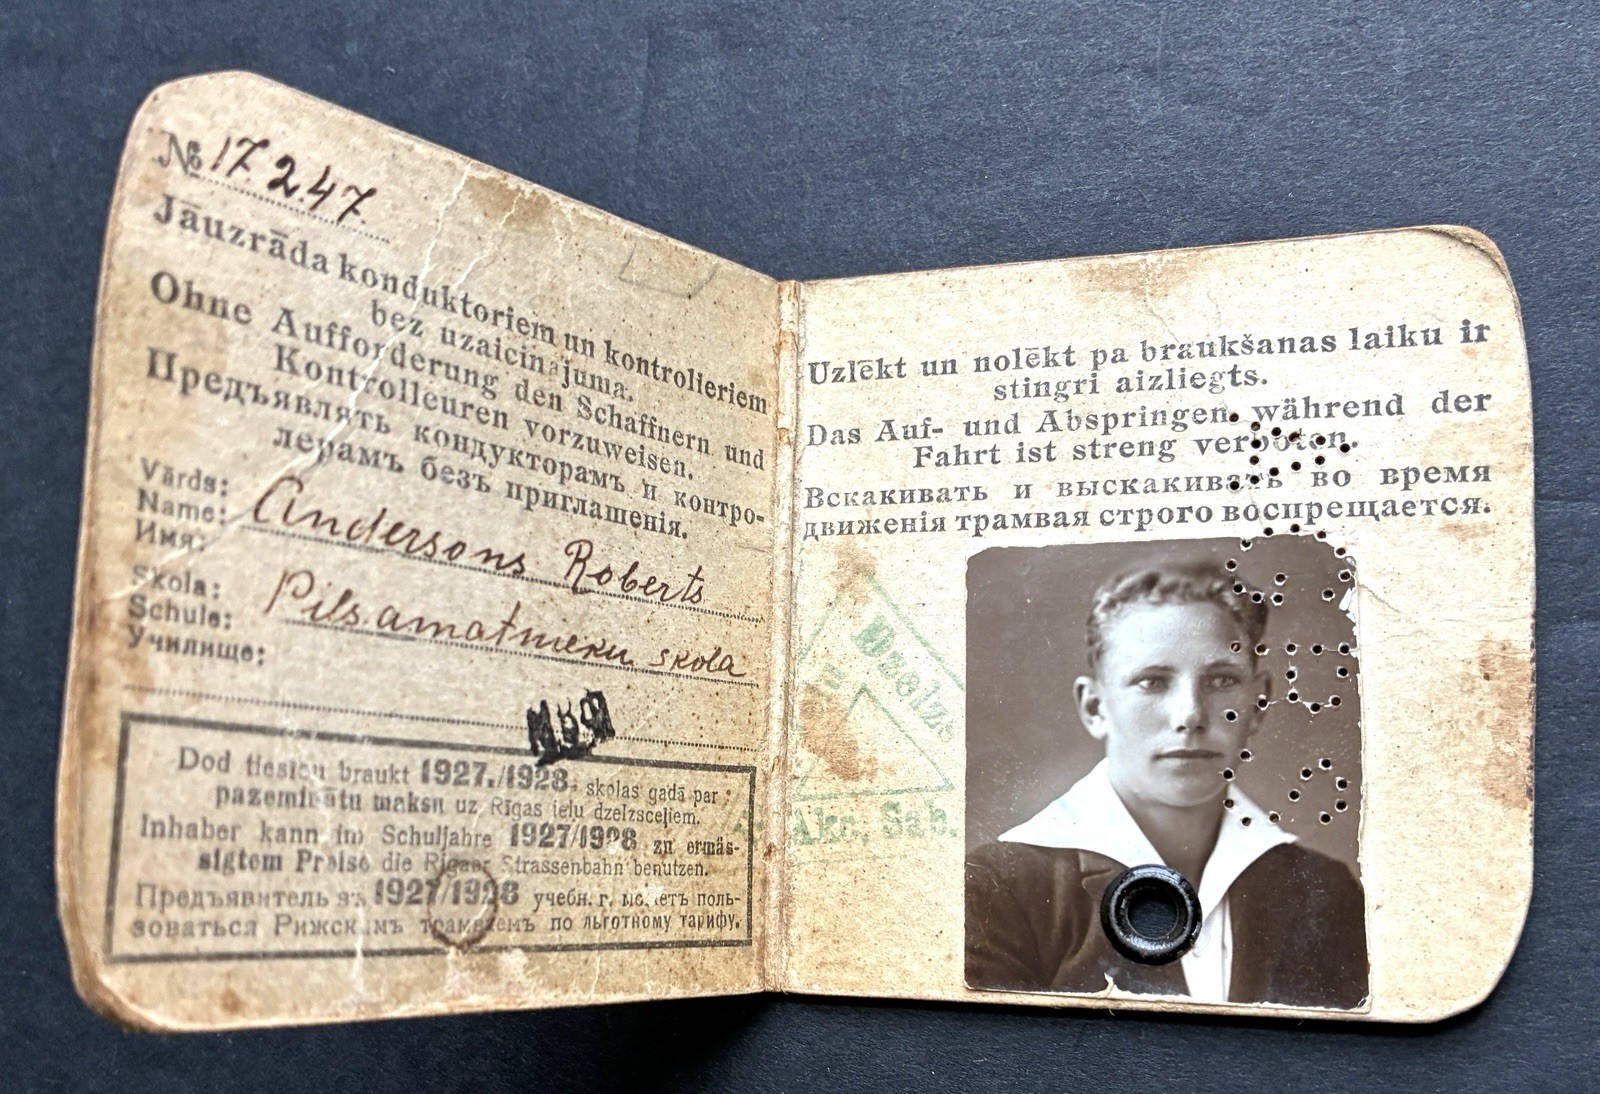 № 17.247.
Jāuzrāda konduktoriem un kontrolieriem
bez uzaicinajuma.
Ohne Aufforderung den Schaffnern und
Kontrolleuren vorzuweisen.
Предъявлять кондукторамъ и контро-
лерамъ безъ приглашенія.
Vārds:
Name: Andersons Roberts
Имя:
Skola:
Schule: Pils. amatnieku skola
Училище:
Dod tiesibu braukt 1927./1928. skolas gadā par
pazeminātu maksu uz Rīgas ielu dzelzsceļiem.
Inhaber kann im Schuljahre 1927/1928 zu ermäs-
sigtem Preise die Rigaer Strassenbahn benutzen.
Предъявитель въ 1927/1928 учебн. г. можетъ поль-
зоваться Рижскимъ трамваемъ по льготному тарифу.
Uzlēkt un nolēkt pa braukšanas laiku ir
stingri aizliegts.
Das Auf- und Abspringen während der
Fahrt ist streng verboten.
Вскакивать и выскакивать во время
движенія трамвая строго воспрещается.
Dzelzs
Akc. Sab.